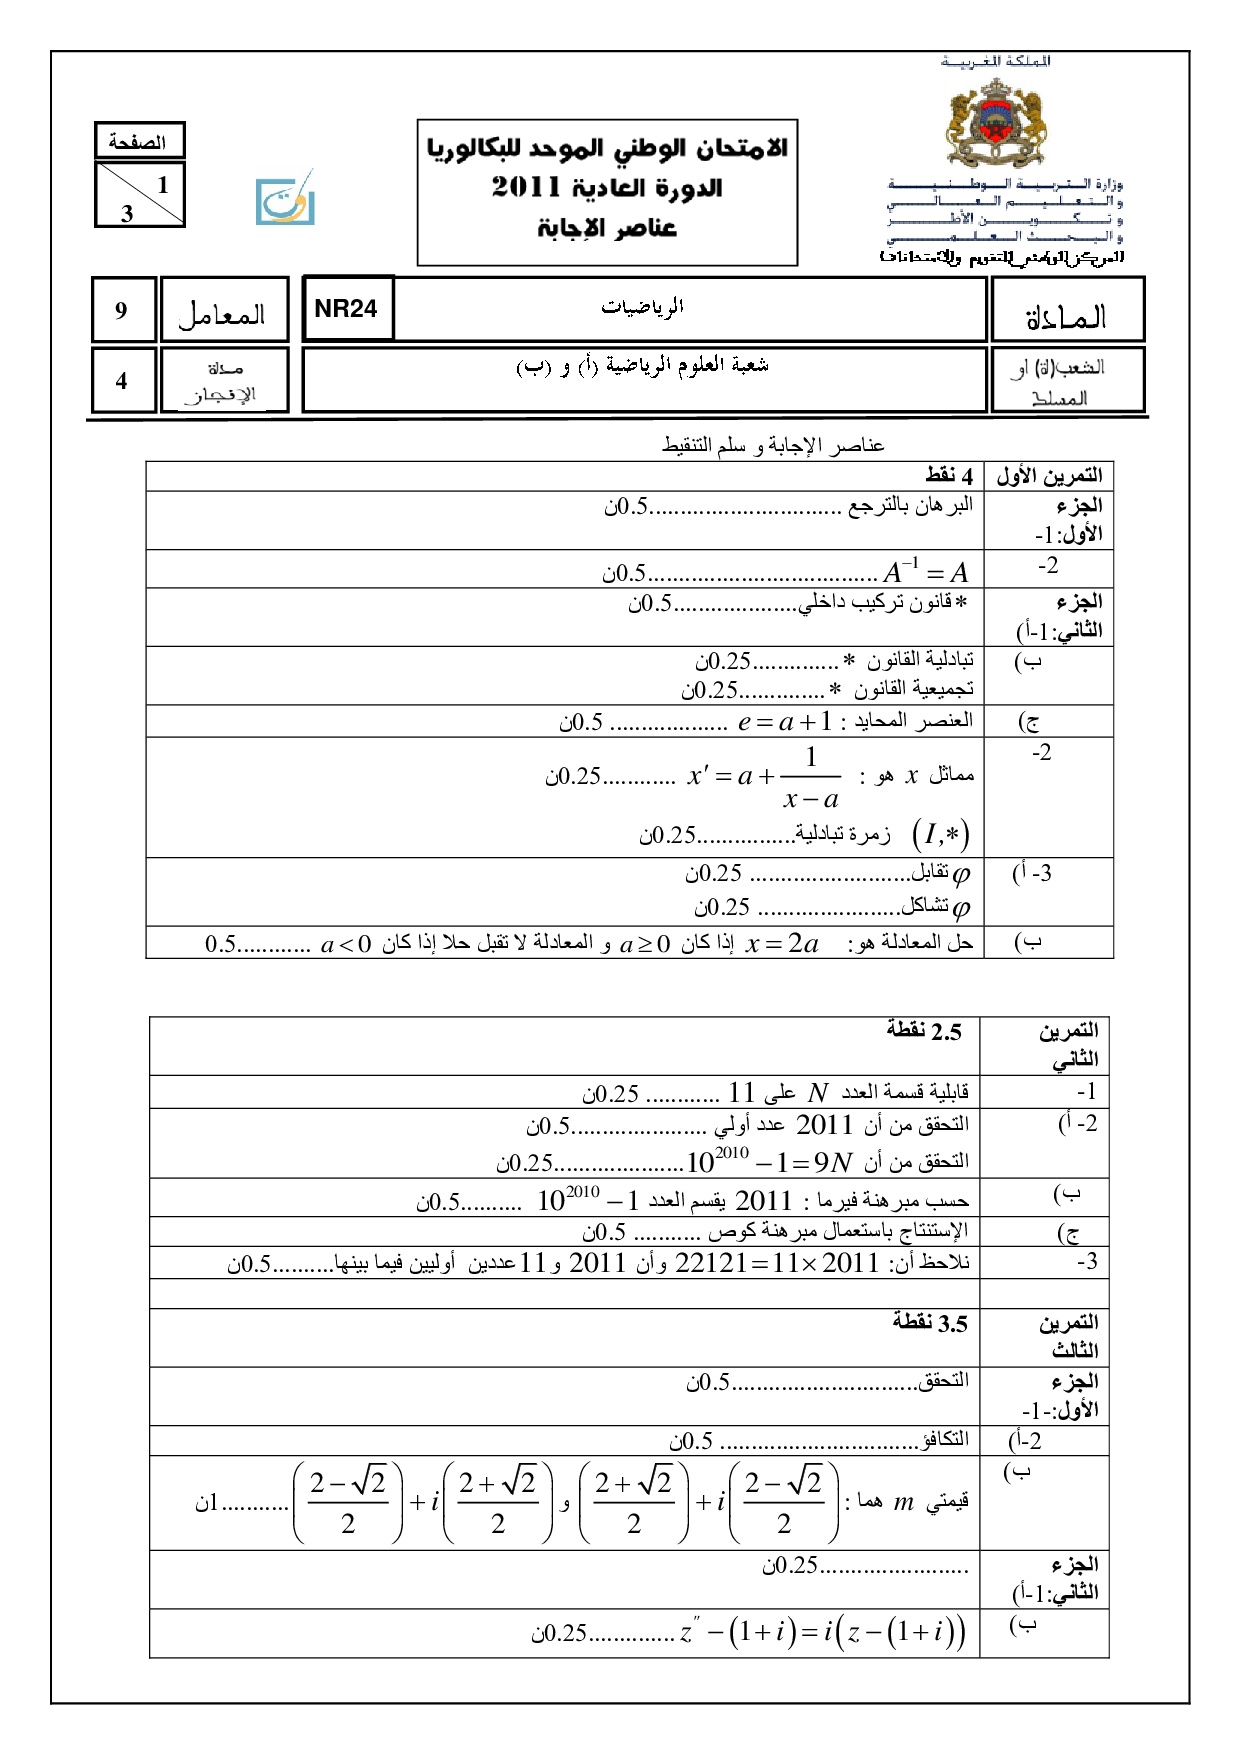 المملكة المغربية
وزارة التربية الوطنية
و التعليم العالي
و تكوين الأطر
و البحث العلمي
المركز الوطني للتقويم والامتحانات
الامتحان الوطني الموحد للبكالوريا
الدورة العادية 2011
عناصر الإجابة
الصفحة
1
3
المادة
الرياضيات
NR24
المعامل
9
الشعب(ة) او المسلك
شعبة العلوم الرياضية (أ) و (ب)
مدة الإنجاز
4
عناصر الإجابة و سلم التنقيط
التمرين الأول 4 نقط
الجزء الأول:1- البرهان بالترجع ...............................0.5ن
2- A⁻¹ = A .....................................0.5ن
الجزء الثاني:1-أ) * قانون تركيب داخلي....................0.5ن
ب) تبادلية القانون * ..............0.25ن
تجميعية القانون * ..............0.25ن
ج) العنصر المحايد : e = a + 1 ................... 0.5ن
2- مماثل x هو : x′ = a + 1/(x − a) ............0.25ن
(I,*) زمرة تبادلية................0.25ن
3- أ) φ تقابل.......................... 0.25ن
φ تشاكل....................... 0.25ن
ب) حل المعادلة هو: x = 2a إذا كان a ≥ 0 و المعادلة لا تقبل حلا إذا كان a < 0 ............0.5
التمرين الثاني 2.5 نقطة
1- قابلية قسمة العدد N على 11 ............ 0.25ن
2- أ) التحقق من أن 2011 عدد أولي ......................0.5ن
التحقق من أن 10²⁰¹⁰ − 1 = 9N .....................0.25ن
ب) حسب مبرهنة فيرما : 2011 يقسم العدد 10²⁰¹⁰ − 1 ..........0.5ن
ج) الإستنتاج باستعمال مبرهنة كوص ........... 0.5ن
3- نلاحظ أن: 22121 = 11 × 2011 وأن 2011 و 11 عددين أوليين فيما بينها..........0.5ن
التمرين الثالث 3.5 نقطة
الجزء الأول:-1- التحقق..............................0.5ن
2-أ) التكافؤ................................ 0.5ن
ب) قيمتي m هما : ((2 + √2)/2) + i((2 − √2)/2) و ((2 − √2)/2) + i((2 + √2)/2) ...........1ن
الجزء الثاني:1-أ) ........................0.25ن
ب) z″ − (1 + i) = i(z − (1 + i)) ..............0.25ن